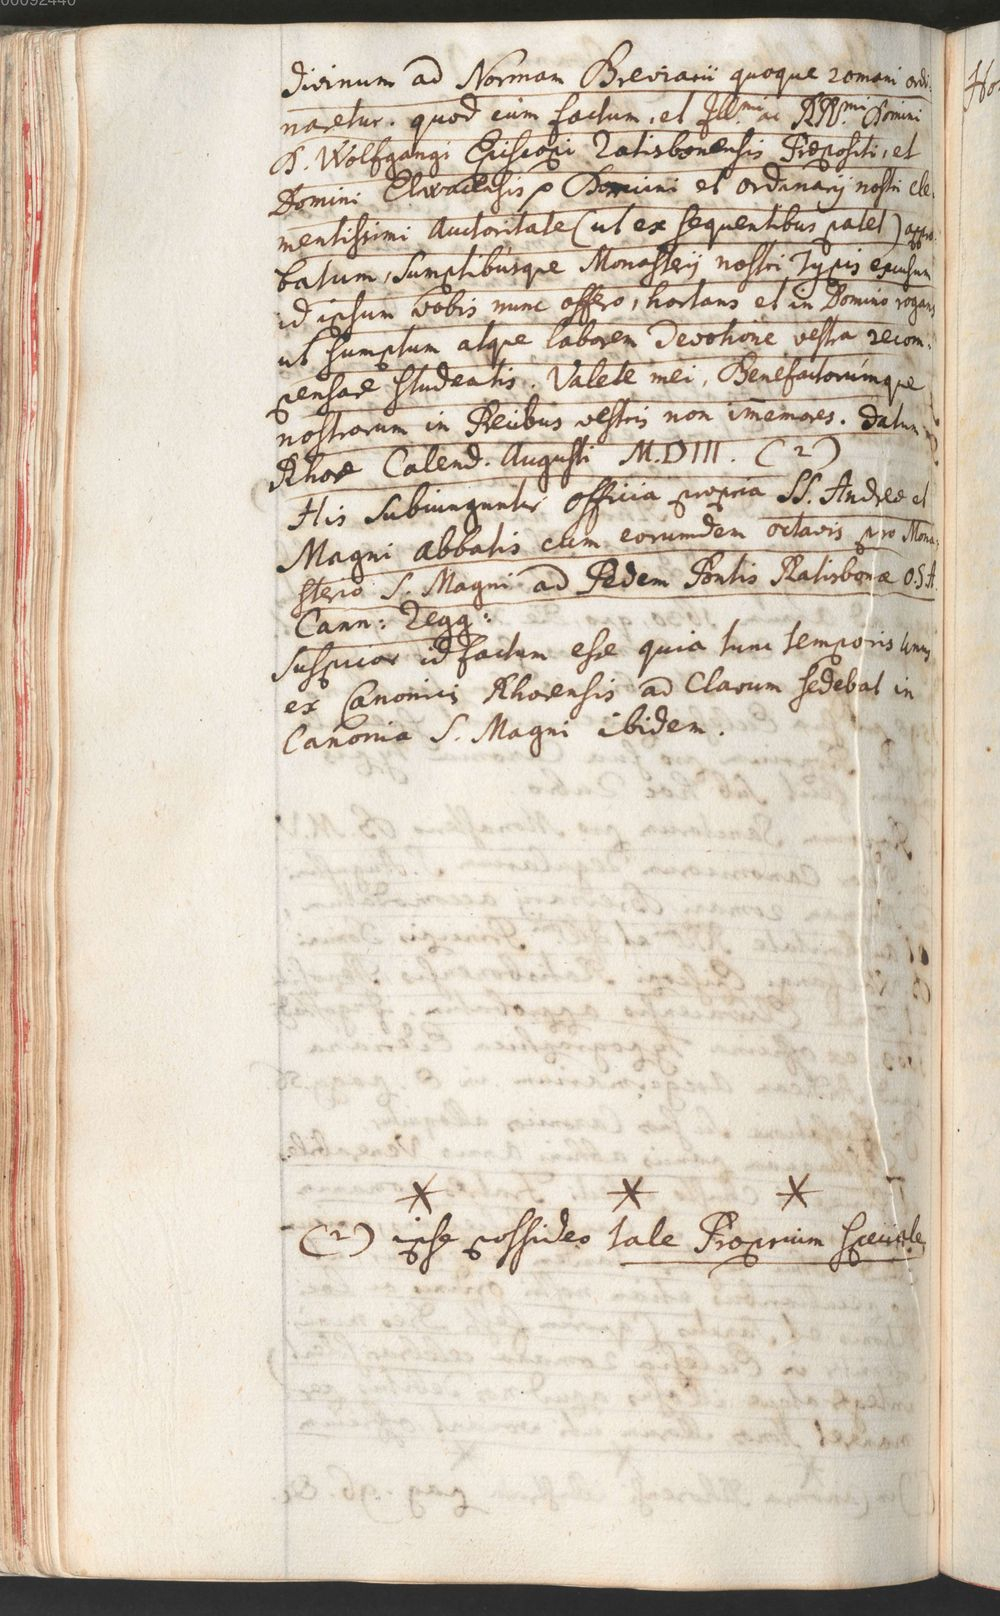 00092440
divinum ad Normam Breviarii quoque romani ordi
naretur. quod cum factum, et Ill.mi ac RR.mi Domini
D. Wolfgangi Episcopi Ratisbonensis Præpositi, et
Domini Elwacensis Domini et ordinarij nostri cle
mentissimi Auctoritate (ut ex sequentibus patet) appro
batum, sumptibusque Monasterij nostri Typis excusum
id ipsum vobis nunc offero, hortans et in Domino rogans
ut sumptum atque laborem Devotione vestra recom:
pensare studeatis. Valete mei, Benefactorúmque
nostrorum in Precibus vestris non im̄emores. Datum
Rhoræ Calend. Augusti M.DIII. (2)
His subiunguntur officia propria SS. Andreæ et
Magni Abbatis cum eorumdem octavis pro Mona:
sterio S. Magni ad Pedem Pontis Ratisbonæ O.S.A.
Cann: Regg:
Suspicor id factum esse quia tunc temporis unus
ex Canonicis Rhorensis ad Clavum sedebat in
Canonia S. Magni ibidem.
(2) ipse possideo tale Proprium speciale
Ho